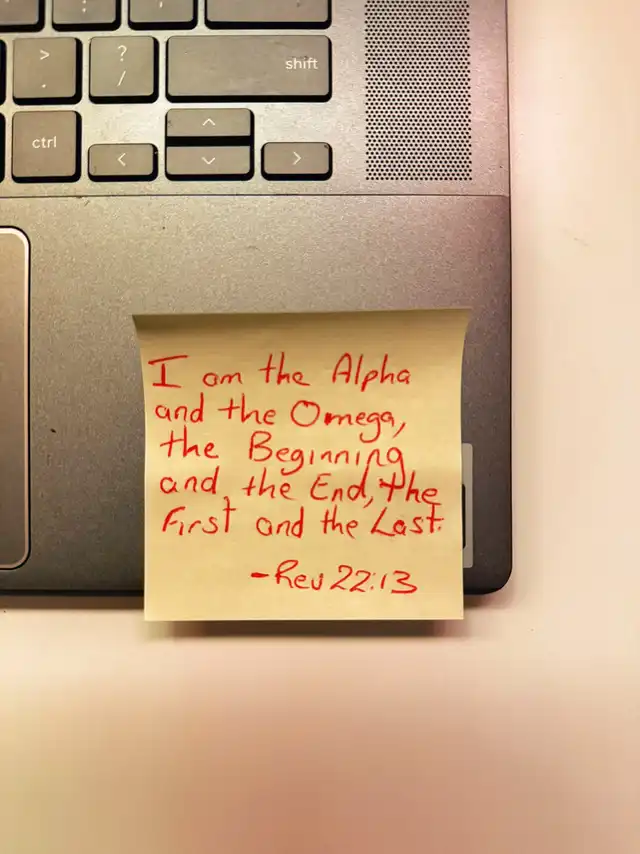 >
.
?
/
shift
ctrl
^
<
>
I am the Alpha
and the Omega,
the Beginning
and the End, the
First and the Last.
-Rev 22:13